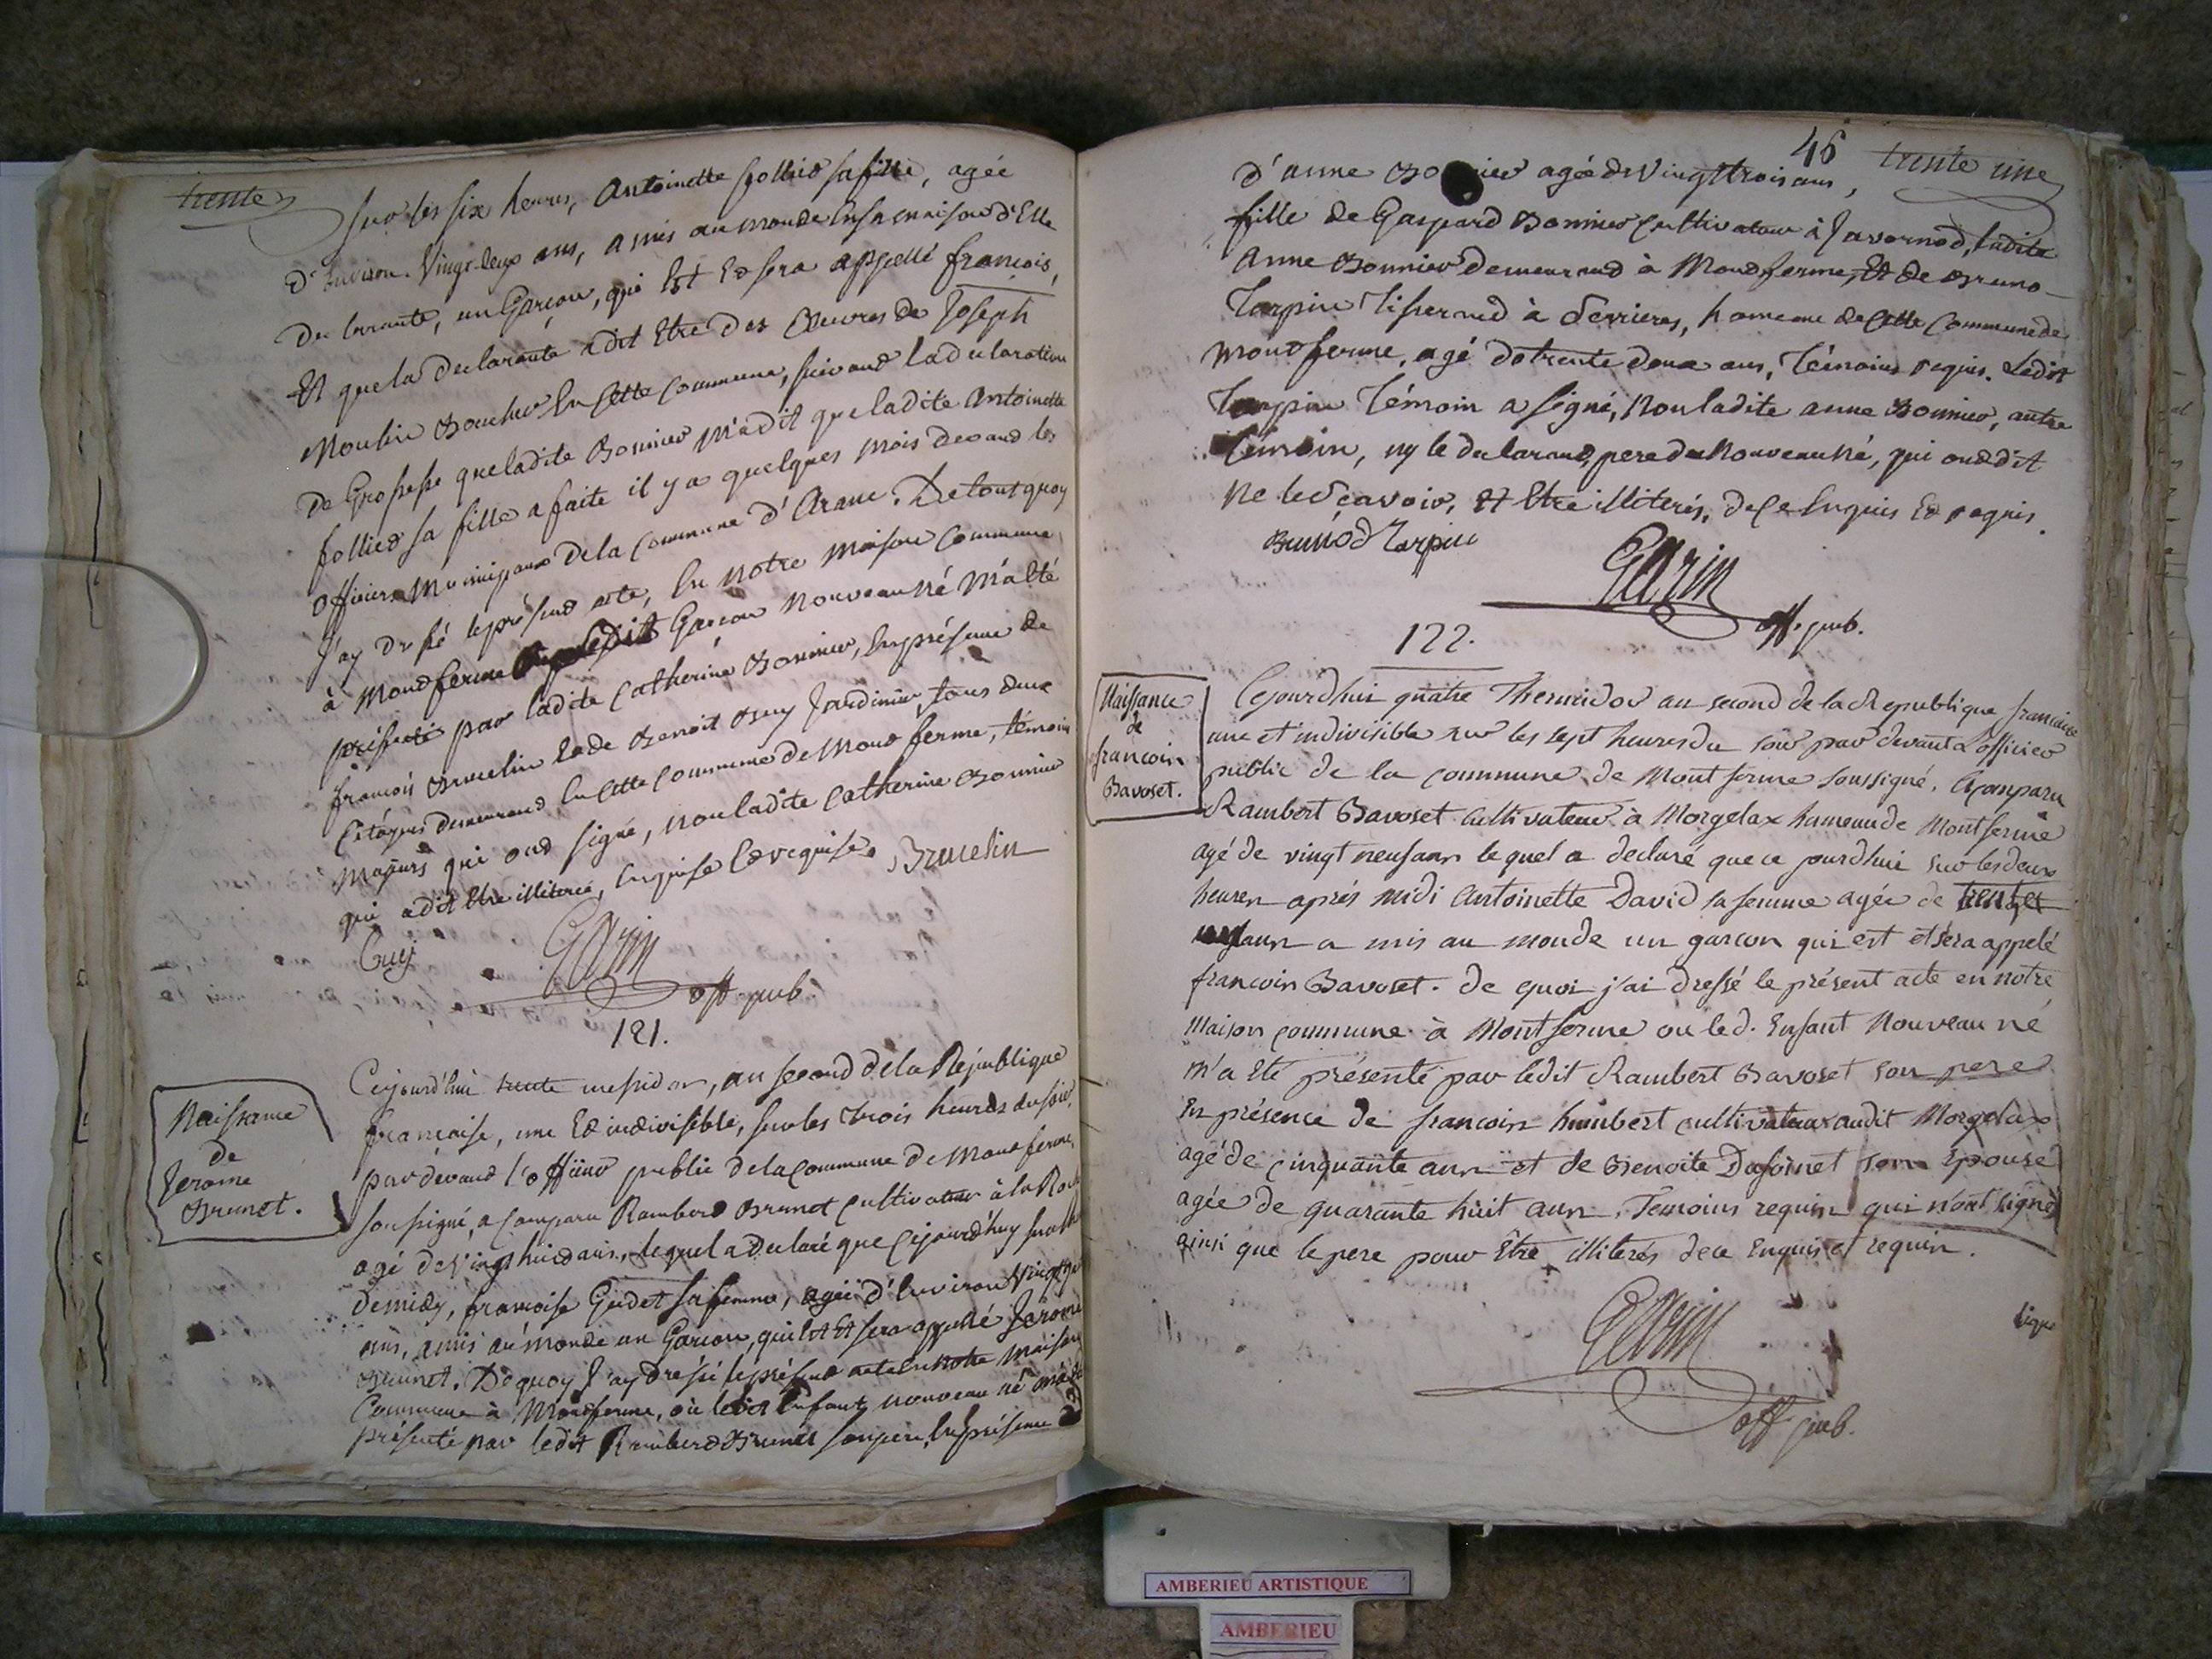 trente
sur les six heures, antoinette follied sa fille, agée
d'environ Vingt-deux ans, a mis au monde En sa maison d'Elle
declarante, un Garçon, qui Est Ed sera appellé françois,
Et que la declarante a dit Etre des Oeuvres de Joseph
Moulin Boucher En Cette Commune, suivand la declaration
de Grossesse que ladite Bonnier m'a dit que ladite antoinette
follied sa fille a faite il y a quelques mois devand les
officiers Municipaux de la Commune d'Aranc. De tout quoy
J'ay Dressé le présend acte, En notre Maison Commune
à Mondferme Garçon nouveau né M'a Eté
présenté par ladite Catherine Bonnier, En présence de
françois Brucelin Ed de Benoit Guy Jardinier, tous deux
Citoyens demeurand En Cette Commune de Mond ferme, témoins
Majeurs qui ond signé, non ladite Catherine Bonnier
qui a dit Etre illiterée, Enquise Ed requise. Brucelin
Guy
Garin
off. pub.
121.
Naissance
de
Jerome
Brunet.
Cejourd'hui trente messidor, an second de la République
française, une Ed indivisible, sur les trois heures du soir,
par devand l'officier public de la Commune de Mondferme,
soussigné, a Comparu Ramberd Brunet Cultivateur à la
agé de Vingt huid ans, lequel a Declaré que Cejourd'huy sur
de midy, françoise Gudet sa femme, agée d'Environ Vingt
ans, a mis au monde un Garçon, qui Est Et sera appellé Jerome
Brunet. De quoy J'ay Dressé le présend acte En notre Maison
Commune à Mondferme, où ledit Enfant nouveau né m'a Eté
présenté par ledit Ramberd Brunet son père, En présence
46 trente une
d'anne Bonnier agée de Vingt trois ans,
fille de Gaspard Bonnier Cultivateur à Javornod, ladite
Anne Bonnier demeurand à Mondferme, Et de Bruno
Tarpin Tisserand à Serrieres, hameau de Cette Commune de
Mondferme, agé de trente deux ans, Témoins requis. Ledit
Tarpin Témoin a signé, Non ladite anne Bonnier, autre
Témoin, ny le declarand, pere du Nouveau Né, qui ond dit
Ne le Sçavoir, Et Etre illiterés, de Ce Enquis Ed requis.
Brunod Tarpin
Garin
off. pub.
122.
Naissance
de
francois
Bavoset.
Cejourdhui quatre Thermidor an second de la Republique francaise
une et indivisible sur les sept heures du soir par devant L'officier
public de la commune de Montferme soussigné, a Comparu
Rambert Bavoset Cultivateur à Morgelax hameau de Montferme
agé de vingt neuf ans lequel a declaré que ce jourdhui sur les deux
heures après midi Antoinette David sa femme agée de trente
ans a mis au monde un garcon qui est et sera appelé
francois Bavoset. de quoi j'ai dressé le présent acte en notre
maison commune à Montferme ou led. Enfant Nouveau né
m'a Eté présenté par ledit Rambert Bavoset son pere
En présence de francois humbert cultivateur audit Morgelax
agé de cinquante ans et de Benoite Dufoinet son Epouse
agée de quarante huit ans, Temoins requis qui n'ont signé
ainsi que le pere pour Etre illiterés de ce Enquis et requis.
Garin
off. pub.
signé
AMBERIEU ARTISTIQUE
AMBERIEU